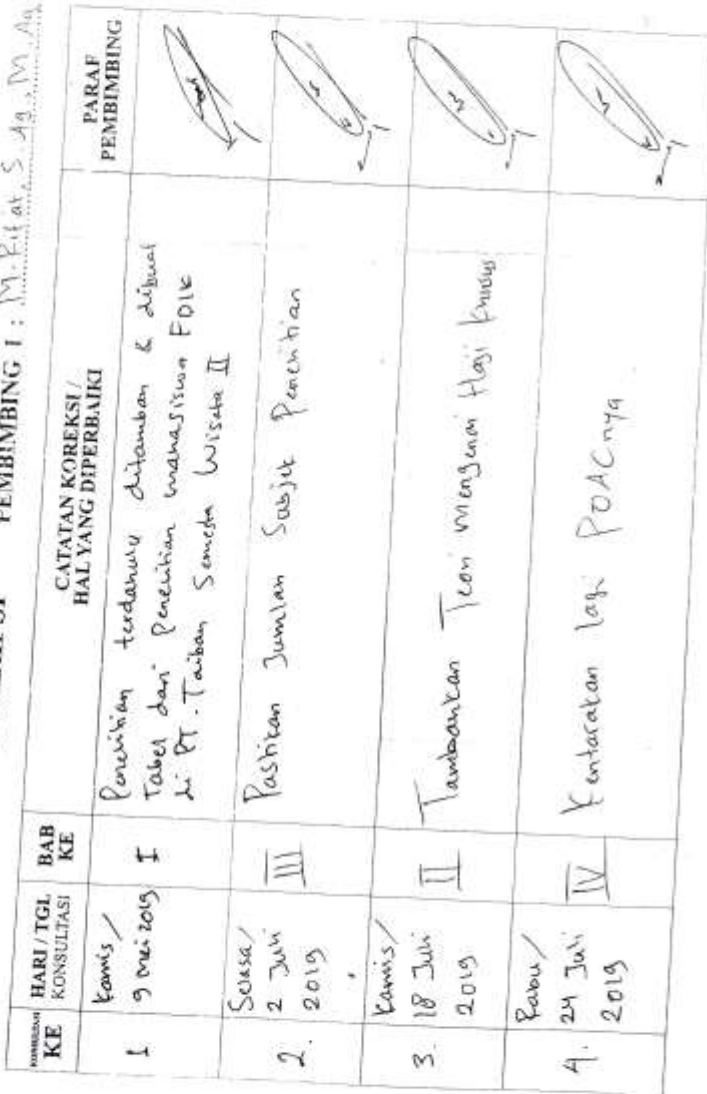 PEMBIMBING I : M. Rif'at, S. Ag, M. Ag
KE
HARI / TGL
KONSULTASI
BAB
KE
CATATAN KOREKSI /
HAL YANG DIPERBAIKI
PARAF
PEMBIMBING
1
Kamis /
9 Mei 2019
I
Penelitian terdahulu ditambah & dibuat
Tabel dari Penelitian mahasiswa FDIK
di PT. Taibah Semesta Wisata II
2.
Selasa /
2 Juli
2019
III
Pastikan Jumlah Subjek Penelitian
3.
Kamis /
18 Juli
2019
II
Tambahkan Teori mengenai Haji Khusus
4.
Rabu /
24 Juli
2019
IV
Kentarakan lagi POACnya.